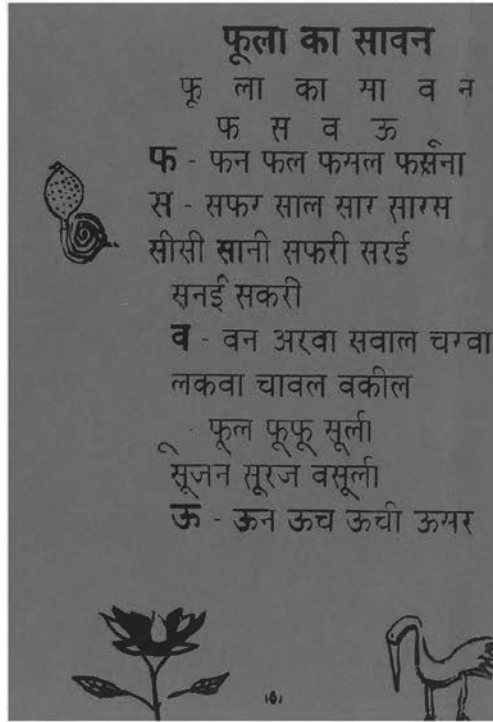 फूला का सावन
फू ला का सा व न
फ स व ऊ
फ - फन फल फसल फसना
स - सफर साल सार सारस
सीसी सानी सफरी सरई
सनई सकरी
व - वन अरवा सवाल चरवा
लकवा चावल वकील
ू - फूल फूफू सूली
सूजन सूरज वसूली
ऊ - ऊन ऊच ऊची ऊसर